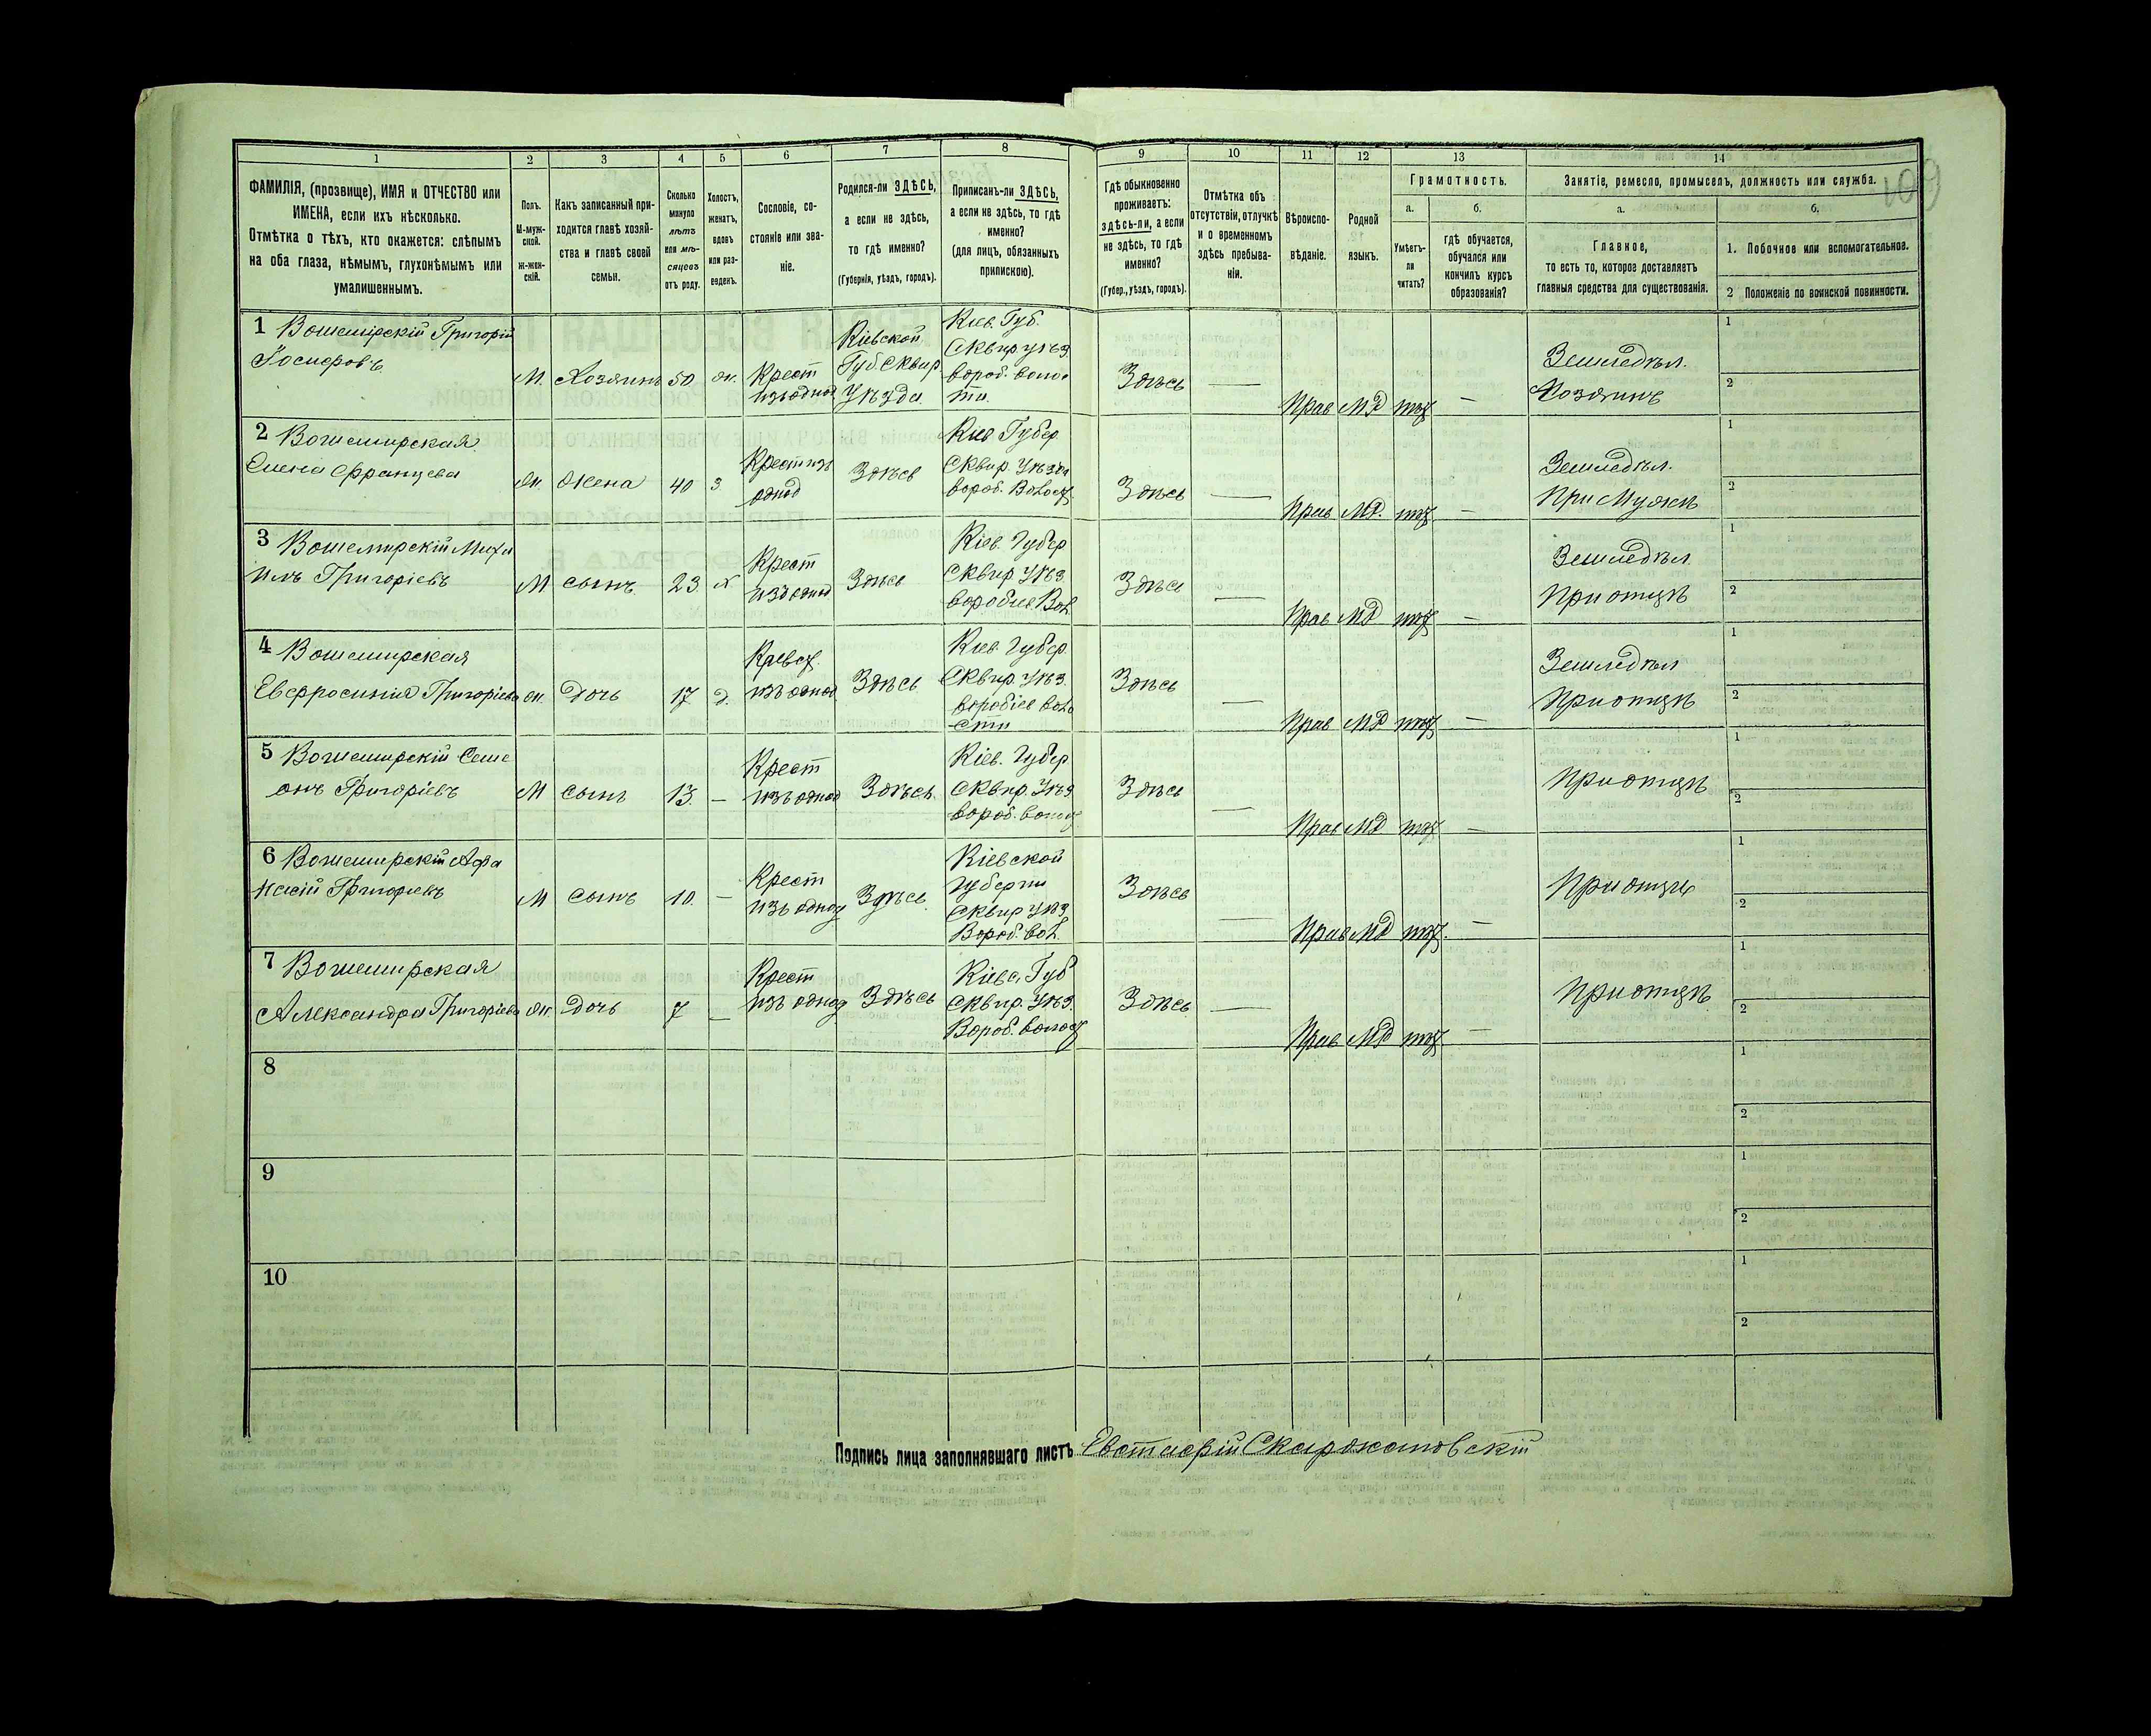 109
1
2
3
4
5
6
7
8
9
10
11
12
13
14
ФАМИЛІЯ, (прозвище), ИМЯ и ОТЧЕСТВО или
ИМЕНА, если ихъ нѣсколько.
Отмѣтка о тѣхъ, кто окажется: слѣпымъ
на оба глаза, нѣмымъ, глухонѣмымъ или
умалишеннымъ.
Полъ.
М-муж-
ской.
Ж-жен-
скій.
Какъ записанный при-
ходится главѣ хозяй-
ства и главѣ своей
семьи.
Сколько
минуло
лѣтъ
или мѣ-
сяцевъ
отъ роду.
Холостъ,
женатъ,
вдовъ
или раз-
веденъ.
Сословіе, со-
стояніе или зва-
ніе.
Родился-ли ЗДѢСЬ,
а если не здѣсь,
то гдѣ именно?
(Губернія, уѣздъ, городъ).
Приписанъ-ли ЗДѢСЬ,
а если не здѣсь, то гдѣ
именно?
(для лицъ, обязанныхъ
припискою).
Гдѣ обыкновенно
проживаетъ:
здѣсь-ли, а если
не здѣсь, то гдѣ
именно?
(Губер., уѣздъ, городъ).
Отмѣтка объ
отсутствіи, отлучкѣ
и о временномъ
здѣсь пребыва-
ніи.
Вѣроиспо-
вѣданіе.
Родной
языкъ.
Грамотность.
а.
Умѣетъ-
ли
читать?
б.
гдѣ обучается,
обучался или
кончилъ курсъ
образованія?
Занятіе, ремесло, промыселъ, должность или служба.
а.
Главное,
то есть то, которое доставляетъ
главныя средства для существованія.
б.
1. Побочное или вспомогательное.
2 Положеніе по воинской повинности.
1 Григорій
Іосифовъ
М. Хозяинъ 50 ж. Крест
изъ однод
Кіевской
Губ. Сквир
Уѣзда
Кіев. Губ.
Сквир. уѣз.
вороб. воло-
сти.
Здѣсь — Прав МР —
Земледѣл.
Хозяинъ
1
2
2
Елена Францева
Ж. Жена 40 з. Крест изъ
однод
Здѣсь
Кіев Губер.
Сквир. Уѣзда
вороб. Волост
Здѣсь — Прав МР. —
Земледѣл.
При Мужѣ
1
2
3 Миха
илъ Григоріевъ
М сынъ 23 х Крест
изъ однод
Здѣсь
Кіев. Губер
Сквир Уѣз.
воробіев Вол.
Здѣсь — Прав МР —
Земледѣл
При отцѣ
1
2
4
Евфросинія Григоріева
Ж. Дочь 17 д.
изъ однод
Здѣсь
Кіев. Губер.
Сквир. Уѣз.
воробіев воло
сти
Здѣсь — Прав МР —
Земледѣл
При отцѣ
1
2
5 Семе
онъ Григоріевъ
М сынъ 13. — Крест
изъ однод
Здѣсь
Кіев. Губер
Сквир Уѣз
вороб. волост
Здѣсь — Прав МР —
При отцѣ
1
2
6 Афа
насій Григоріевъ
М сынъ 10. — Крест
изъ однод
Здѣсь
Кіевской
Губерни
Сквир Уѣз
Вороб. вол.
Здѣсь — Прав МР —
При отцѣ
1
2
7
Александра Григоріева
Ж. Дочь 7 — Крест
изъ однод
Здѣсь
Кіевс. Губ
Сквир. Уѣз.
Вороб. волост
Здѣсь — Прав МР —
При отцѣ
1
2
8
1
2
9
1
2
10
1
2
Подпись лица заполнявшаго листъ Евстафій